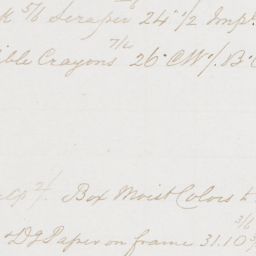 5/6 Scraper 24" 1/2 Imp
7/6
ible Crayons 26" CW/. B.
Box Moist Colors &
3/6
& DG Paper on frame 31.10